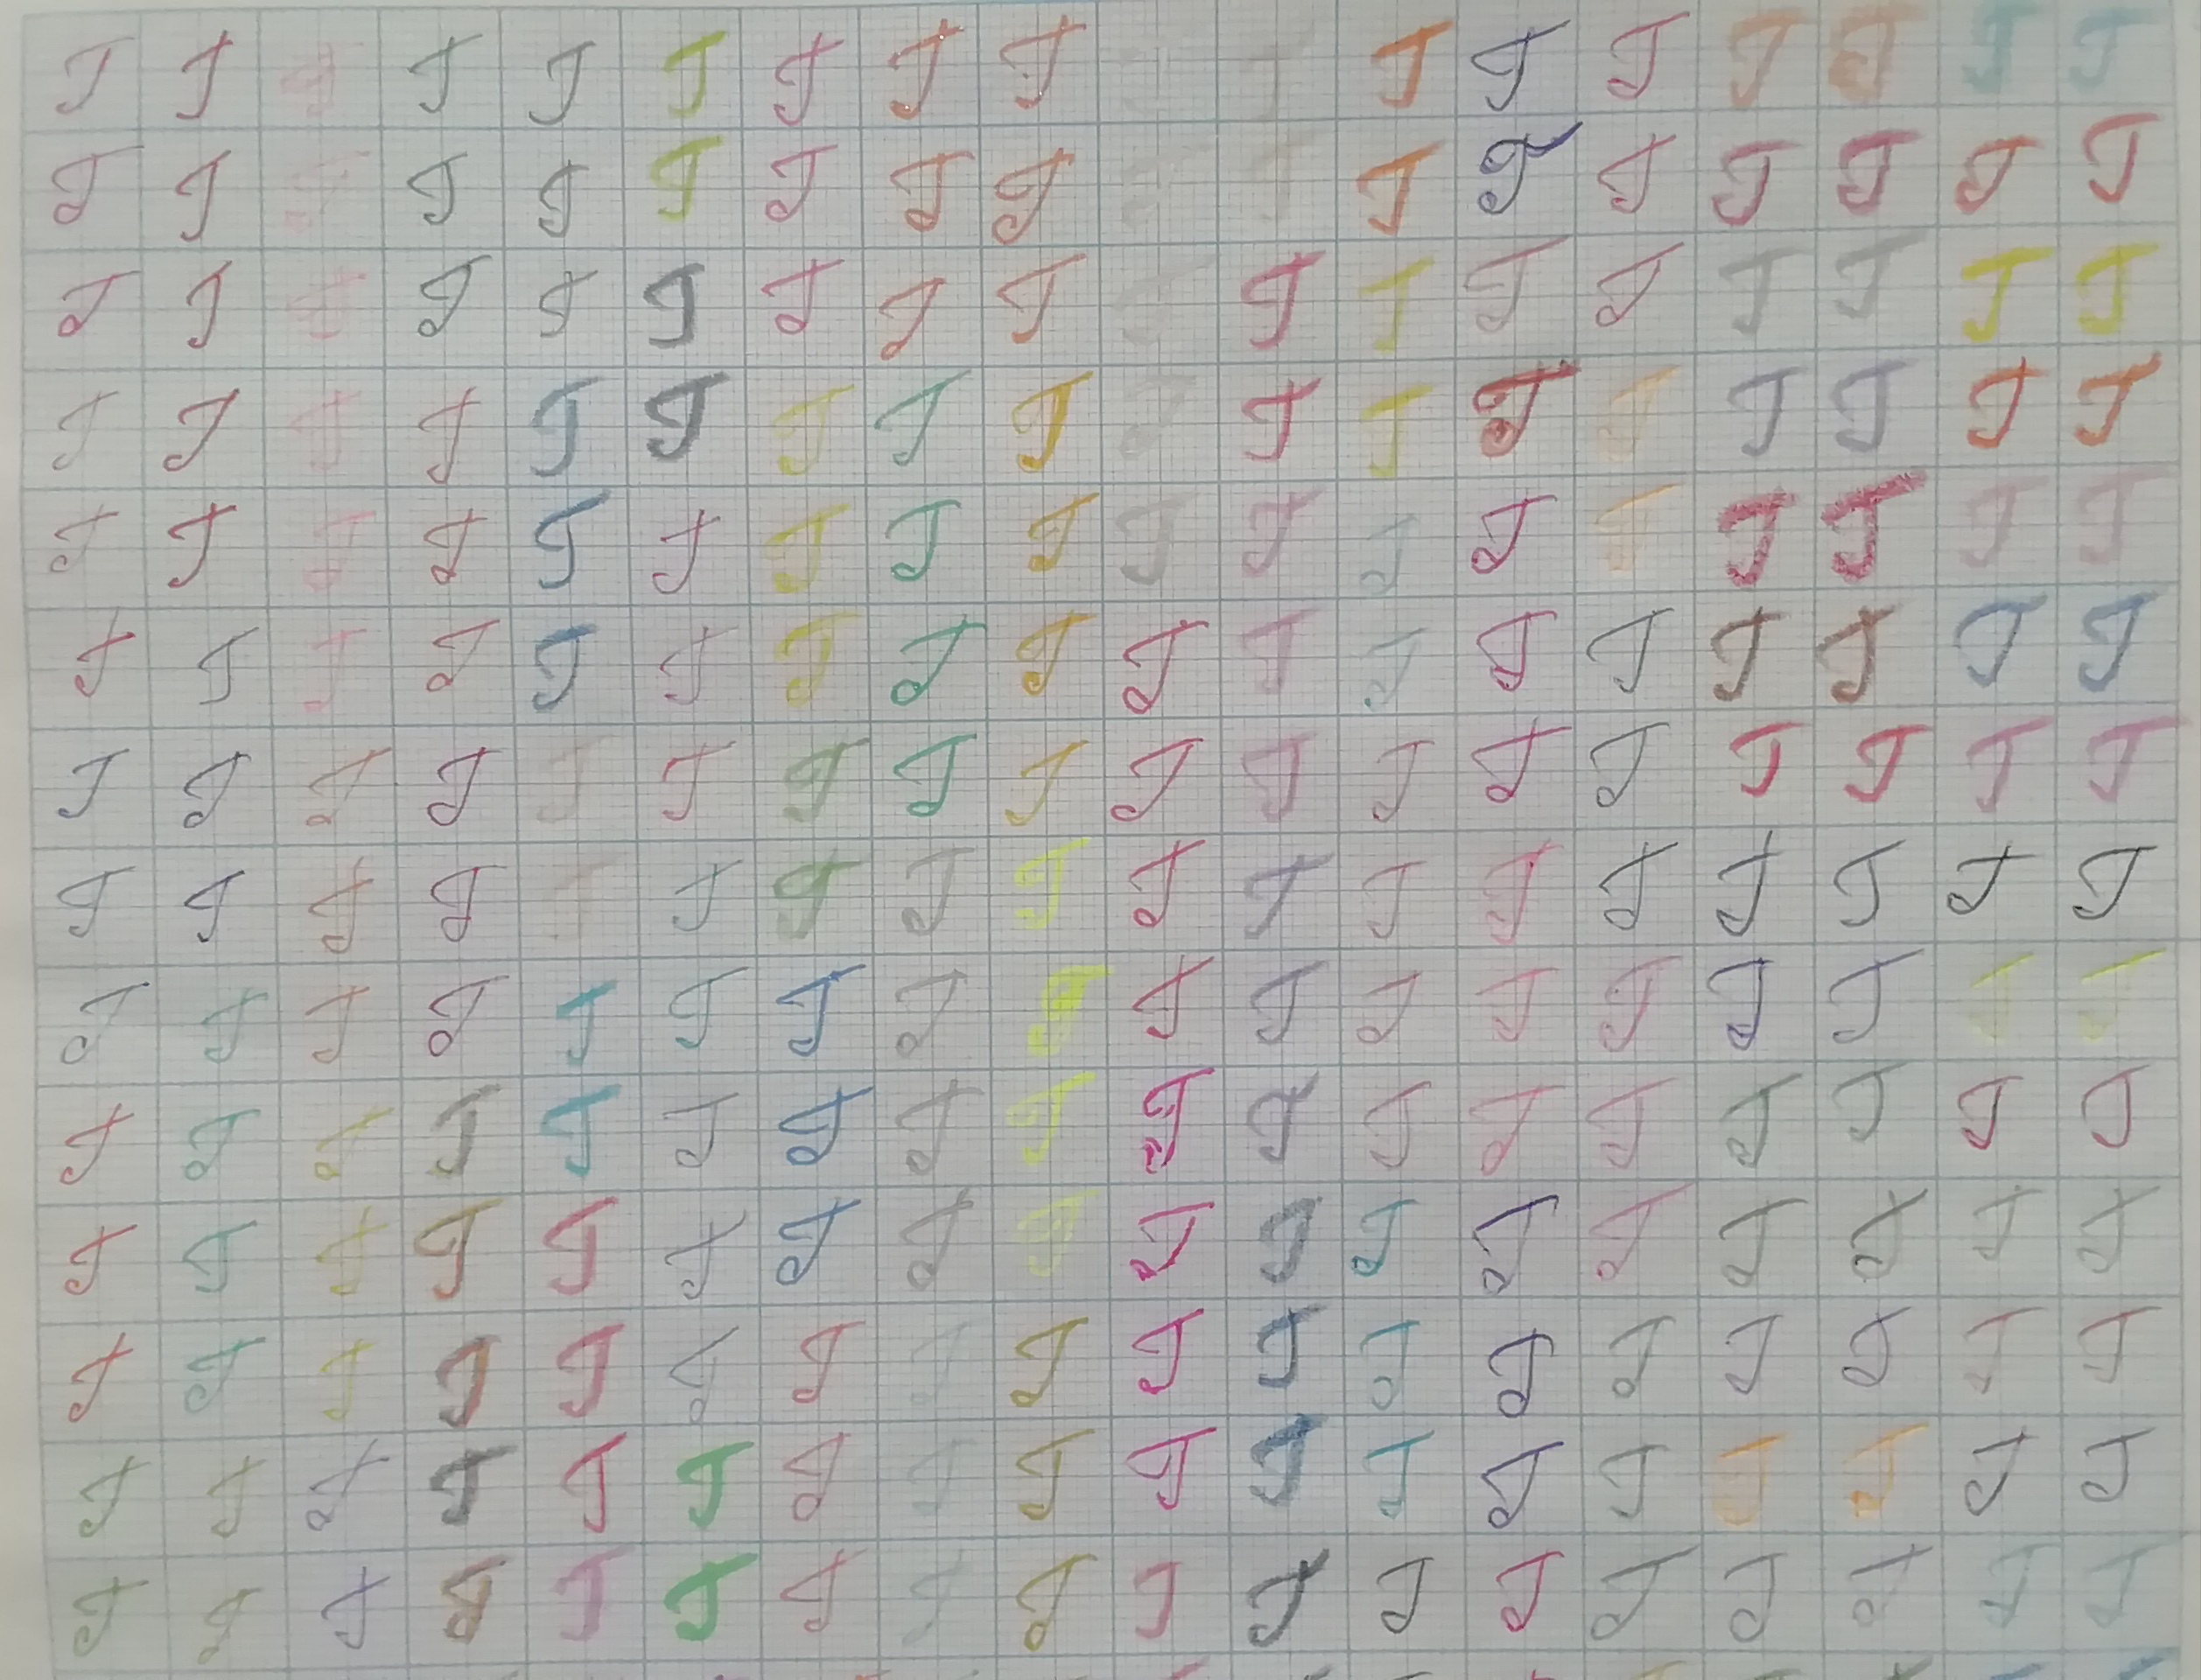 J J J J J J J J J J J J J J J J J J
J J J J J J J J J J J J J J J J J J
J J J J J J J J J J J J J J J J J J
J J J J J J J J J J J J J J J J J J
J J J J J J J J J J J J J J J J J J
J J J J J J J J J J J J J J J J J J
J J J J J J J J J J J J J J J J J J
J J J J J J J J J J J J J J J J J J
J J J J J J J J J J J J J J J J J J
J J J J J J J J J J J J J J J J J J
J J J J J J J J J J J J J J J J J J
J J J J J J J J J J J J J J J J J J
J J J J J J J J J J J J J J J J J J
J J J J J J J J J J J J J J J J J J